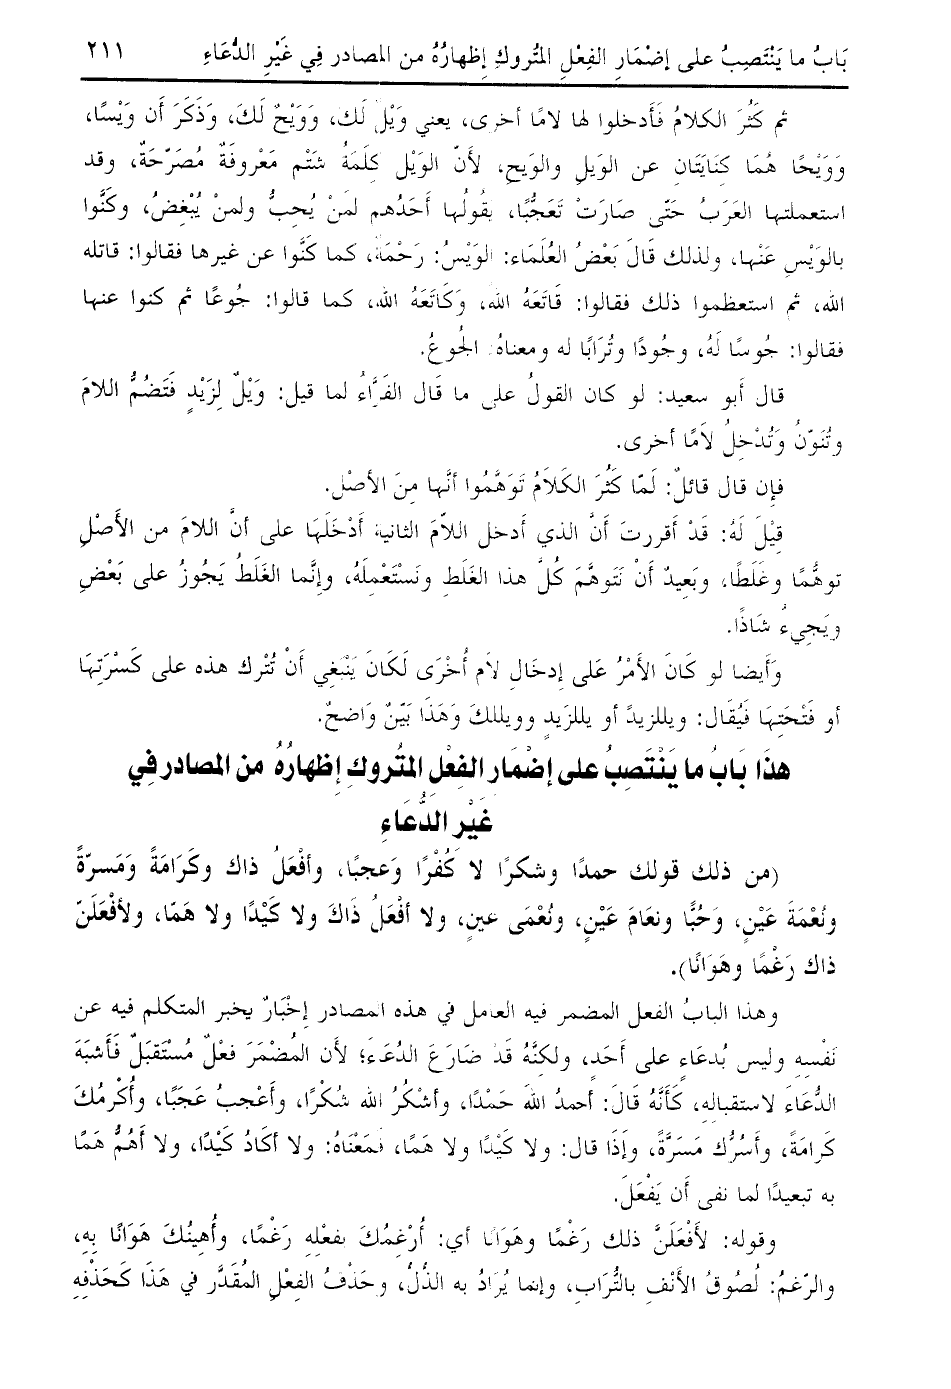 بَابُ ما يَنْتَصِبُ على إضْمَارِ الفِعْلِ المَتُروكِ إظهارُهُ من المصادر فِي غَيْرِ الدُّعَاءِ ٢١١
ثم كَثُرَ الكلامُ فَأَدخلوا لها لامًا أخرى، يعني وَيْلٌ لَكَ، وَوَيْحٌ لَكَ، وَذَكَرَ أَن وَيْسًا،
وَوَيْحًا هُمَا كنَايَتَان عن الوَيلِ والوَيحِ، لأَنّ الوَيْل كَلِمَةُ شَتْم مَعْروفَةٌ مُصَرّحَةٌ، وقد
استعملتها العَرَبُ حَتّى صَارَتْ تَعَجُّبًا، يقولُها أَحَدُهم لمنْ يُحبُّ ولمنْ يُبْغِضُ، وكَنَّوا
بالوَيْسِ عَنْها، ولذلك قَالَ بَعْضُ العُلَمَاء: الوَيْسُ: رَحْمَة، كما كَنَّوا عن غيرها فقالوا: قاتله
الله، ثم استعظموا ذلك فقالوا: قَاتَعَهُ الله، وَكَاتَعَهُ الله، كما قالوا: جُوعًا ثم كنوا عنها
فقالوا: جُوسًا لَهُ، وجُودًا وتُرَابًا له ومعناهُ الجُوعُ.
قال أَبو سعيد: لو كان القولُ على ما قَال الفَرَّاءُ لما قيل: وَيْلٌ لِزَيْدٍ فَتَضُمُّ اللامَ
وتُنَوّنُ وَتُدْخِلُ لاَمًا أخرى.
فإن قال قائلٌ: لَمّا كَثُرَ الكَلاَمُ تَوَهَّمُوا أنَّها مِنَ الأصْل.
قِيْلَ لَهُ: قَدْ أَقررتَ أَنَّ الذي أَدخل اللاّمَ الثانية أَدْخَلَهَا على أنَّ اللامَ من الأَصْلِ
توهُّمًا وغَلَطًا، وبَعِيدٌ أَنْ نَتَوهَّمَ كُلَّ هذا الغَلَطِ ونَسْتَعْمِلَهُ، وإنَّما الغَلَطُ يَجُوزُ على بَعْضٍ
ويَجِيءُ شَاذًا.
وَأَيضا لو كَانَ الأمْرُ عَلى إدخَال لاَم أُخْرَى لَكَانَ يَنْبَغِي أَنْ تُتْرك هذه على كَسْرَتِهَا
أو فَتْحَتِهَا فَيُقَال: ويللزيدً أو يللزَيدٍ وويللكَ وَهَذَا بَيّنٌ وَاضحٌ.
هذَا بَابُ ما يَنْتَصِبُ على إضْمَار الفعْل المتُروك إظهارُهُ من المصادر في
غَيْرِ الدُّعَاءِ
(من ذلك قولك حمدًا وشكرًا لا كُفْرًا وَعجبًا، وأفْعَلُ ذاك وكَرَامَةً وَمَسرّةً
ونُعْمَةَ عَيْنٍ، وَحُبًّا ونعَامَ عَيْنٍ، ونُعْمَى عينٍ، ولا أفْعَلُ ذَاكَ ولا كَيْدًا ولا هَمًّا، ولأفْعَلَنّ
ذاك رَغْمًا وهَوَانًا).
وهذا البابُ الفعل المضمر فيه العامل في هذه المصادر إخْبَارٌ يخبر المتكلم فيه عن
نَفْسِهِ وليس بُدعَاءٍ على أَحَدٍ، ولكنَّهُ قَدْ ضَارَعَ الدُعَاءَ؛ لأن المُضْمَرَ فعْلٌ مُسْتَقبَلٌ فَأَشبَهَ
الدُّعَاءَ لاستقباله، كَأنَّهُ قَالَ: أحمدُ اللهَ حَمْدًا، وأشْكُرُ الله شُكْرًا، وأَعْجبُ عَجَبًا، وأُكْرِمُكَ
كَرامَةً، وأَسُرُّك مَسَرَّةً، وإذَا قال: ولا كَيْدًا ولا هَمًا، فمَعْنَاهُ: ولا أكَادُ كَيْدًا، ولا أَهُمُّ هَمًا
به تبعيدًا لما نفى أَن يَفْعَلَ.
وقوله: لأَفْعَلَنَّ ذلك رَغْمًا وهَوَانًا أي: أُرْغِمُكَ بفعْلِهِ رَغْمًا، وأُهينُكَ هَوَانًا بِهِ،
والرّغمُ: لُصُوقُ الأَنْفِ بالتُّرَاب، وإنما يُرَادُ به الذُلُّ، وحَذْفُ الفِعْلِ المُقَدَّر في هَذَا كَحَذْفِهِ